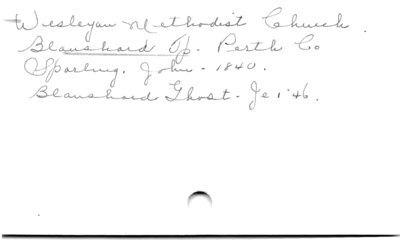 Wesleyan Methodist Church.
Blanshard Tp. Perth Co
Sparling, John - 1840.
Blanshard Ghost - Je 1 '46.